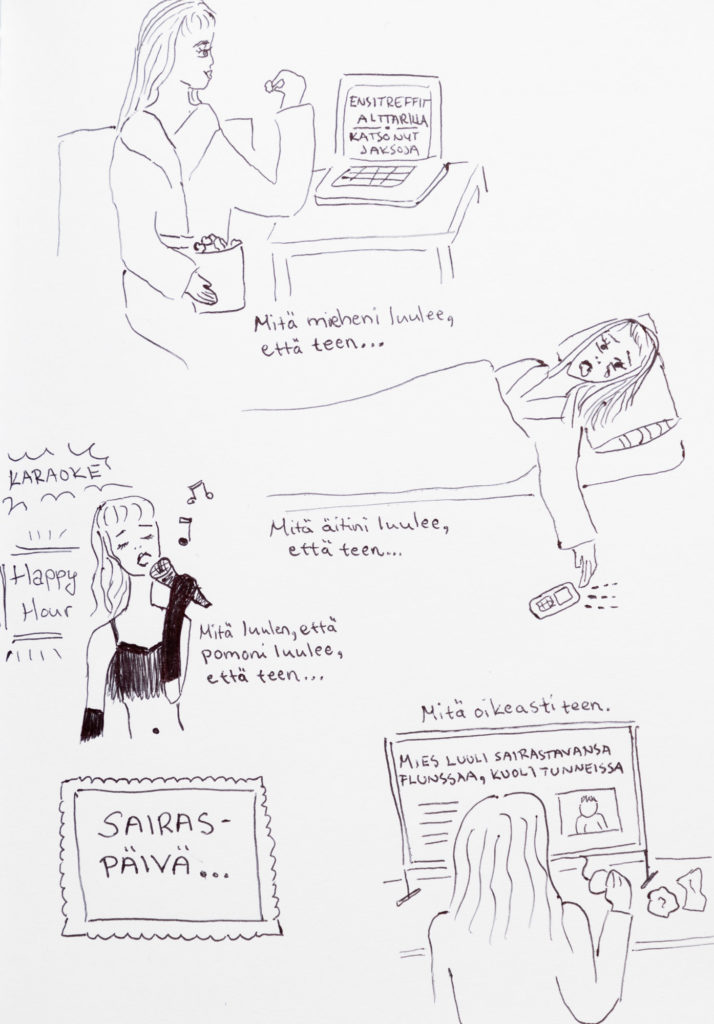 ENSITREFFIT
ALTTARILLA
KATSO NYT
JAKSOJA
Mitä mieheni luulee,
että teen...
Mitä äitini luulee,
että teen...
KARAOKE
Happy
Hour
Mitä luulen, että
pomoni luulee,
että teen...
Mitä oikeasti teen.
MIES LUULI SAIRASTAVANSA
FLUNSSAA, KUOLI TUNNEISSA
SAIRAS-
PÄIVÄ...